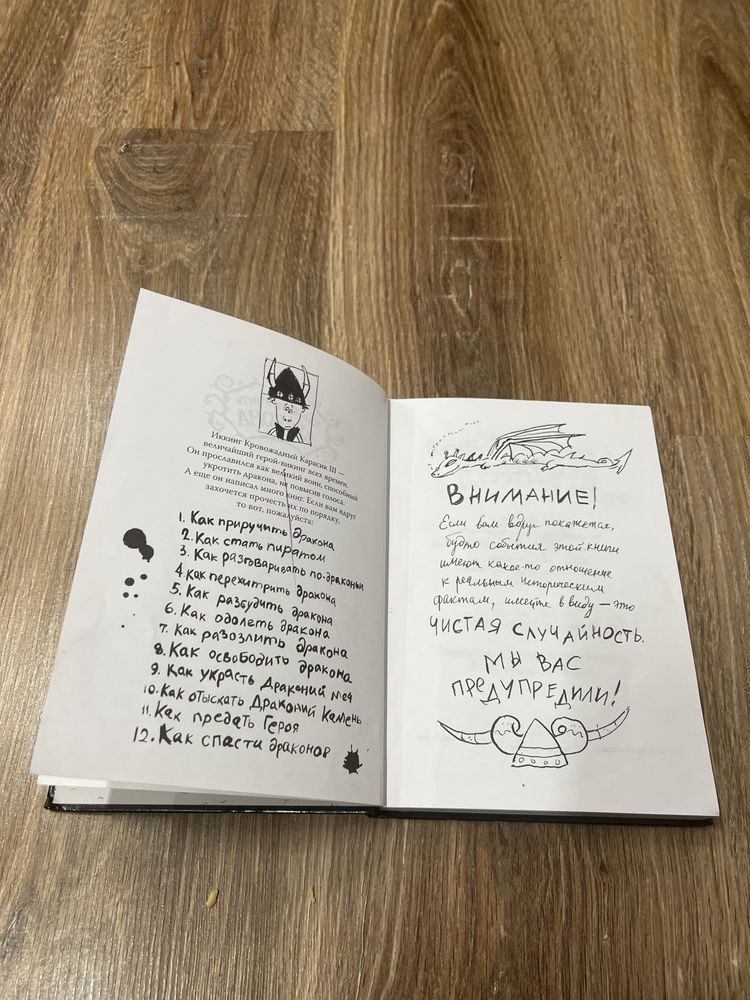 Иккинг Кровожадный Карасик III —
величайший герой-викинг всех времен.
Он прославился как великий воин, способный
укротить дракона, не повысив голоса.
А еще он написал много книг. Если вам вдруг
захочется прочесть их по порядку,
то вот, пожалуйста:
1. Как приручить дракона
2. Как стать пиратом
3. Как разговаривать по-драконьи
4. Как перехитрить дракона
5. Как разбудить дракона
6. Как одолеть дракона
7. Как разозлить дракона
8. Как освободить дракона
9. Как украсть Драконий меч
10. Как отыскать Драконий Камень
11. Как предать Героя
12. Как спасти драконов
ВНИМАНИЕ!
Если вам вдруг покажется,
будто события этой книги
имеют какое-то отношение
к реальным историческим
фактам, имейте в виду — это
ЧИСТАЯ СЛУЧАЙНОСТЬ.
МЫ ВАС
ПРЕДУПРЕДИЛИ!